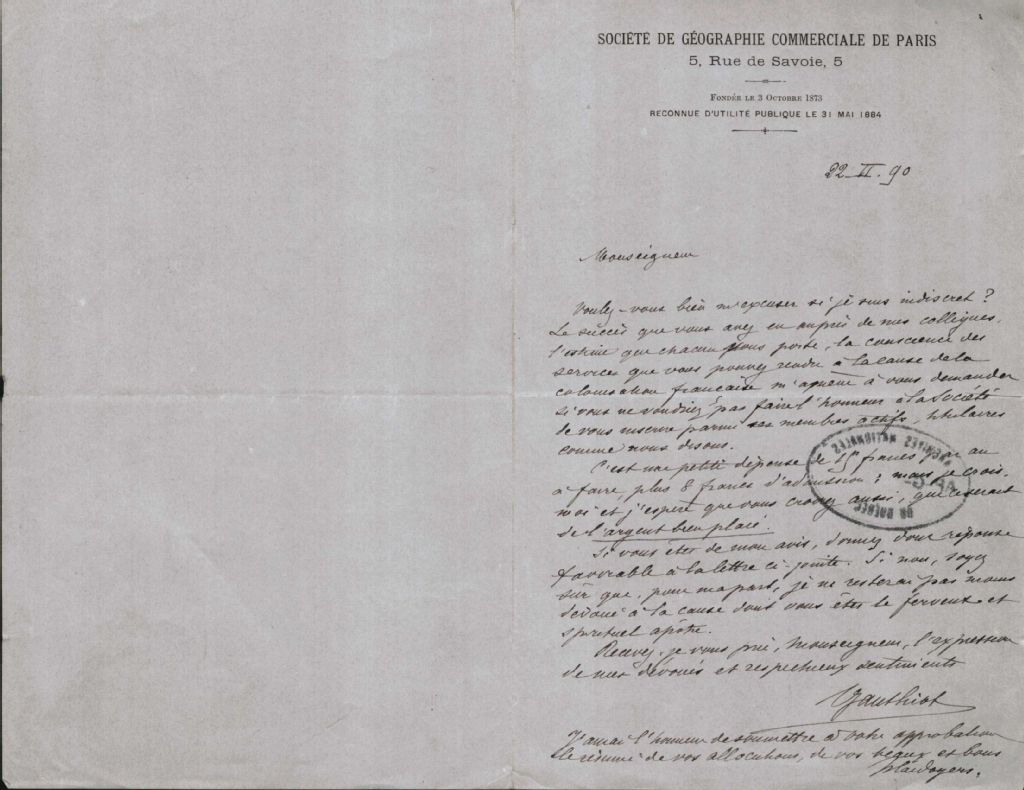 SOCIÉTÉ DE GÉOGRAPHIE COMMERCIALE DE PARIS
5, Rue de Savoie, 5
Fondée le 3 Octobre 1873
RECONNUE D'UTILITÉ PUBLIQUE LE 31 MAI 1884
22 II. 90
Monseigneur
Voulez-vous bien m'excuser si je suis indiscret ?
Le succès que vous avez eu auprès de nos collègues,
l'estime que chacun vous porte, la conscience des
services que vous pouvez rendre à la cause de la
colonisation française m'amène à vous demander
si vous ne voudriez pas faire l'honneur à la Société
de vous inscrire parmi ses membres actifs, titulaires
comme nous disons.
C'est une petite dépense de francs par an
à faire, plus 8 francs d'admission ; mais je crois,
moi et j'espère que vous croirez aussi, que ce serait
de l'argent bien placé.
Si vous êtes de mon avis, donnez donc réponse
favorable à la lettre ci-jointe. Si non, soyez
sûr que, pour ma part, je ne resterai pas moins
dévoué à la cause dont vous êtes le fervent et
spirituel apôtre.
Recevez, je vous prie, Monseigneur, l'expression
de mes dévoués et respectueux sentiments
Gauthiot
J'aurai l'honneur de soumettre à votre approbation
le résumé de vos allocutions, de vos beaux et bons
plaidoyers.
ARCHIVES NATIONALES
DU QUÉBEC